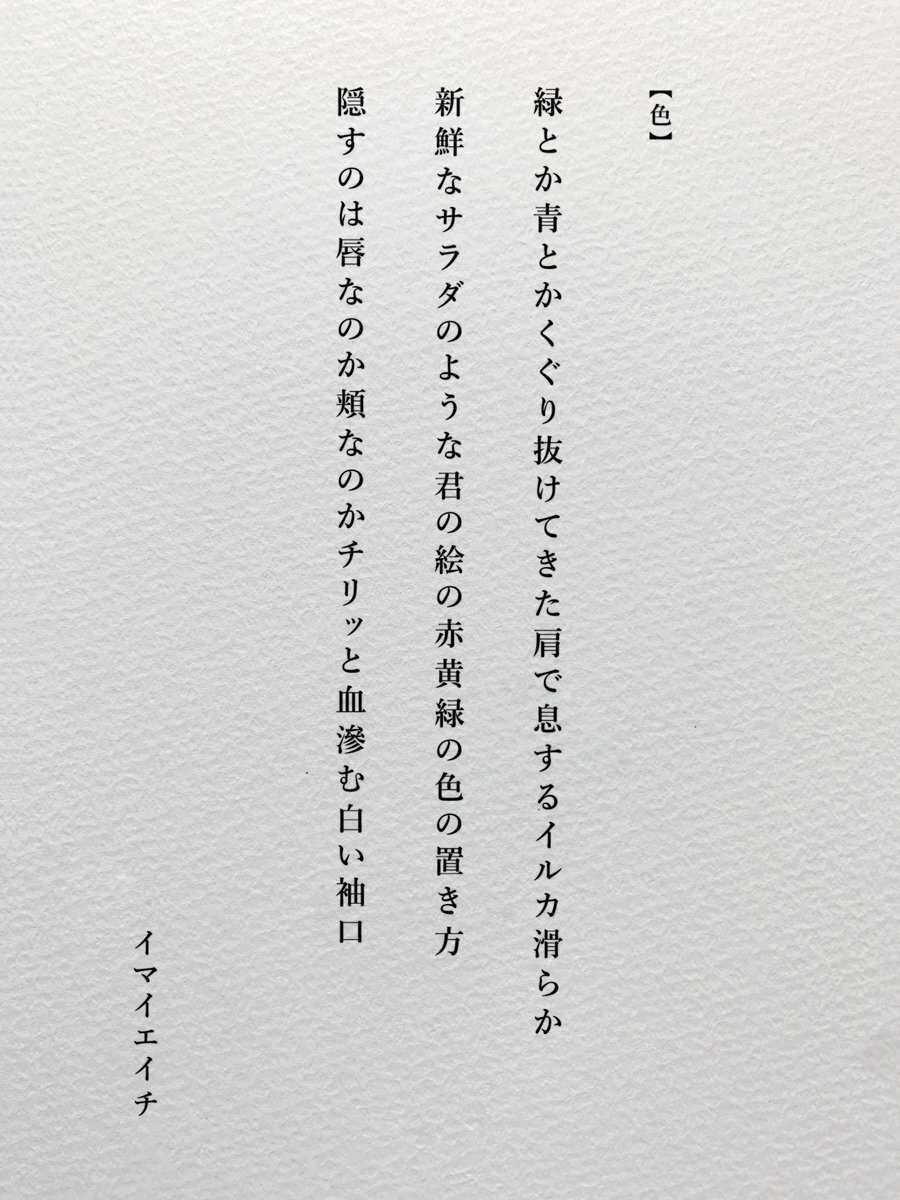 【色】
緑とか青とかくぐり抜けてきた肩で息するイルカ滑らか
新鮮なサラダのような君の絵の赤黄緑の色の置き方
隠すのは唇なのか頬なのかチリッと血滲む白い袖口
イマイエイチ